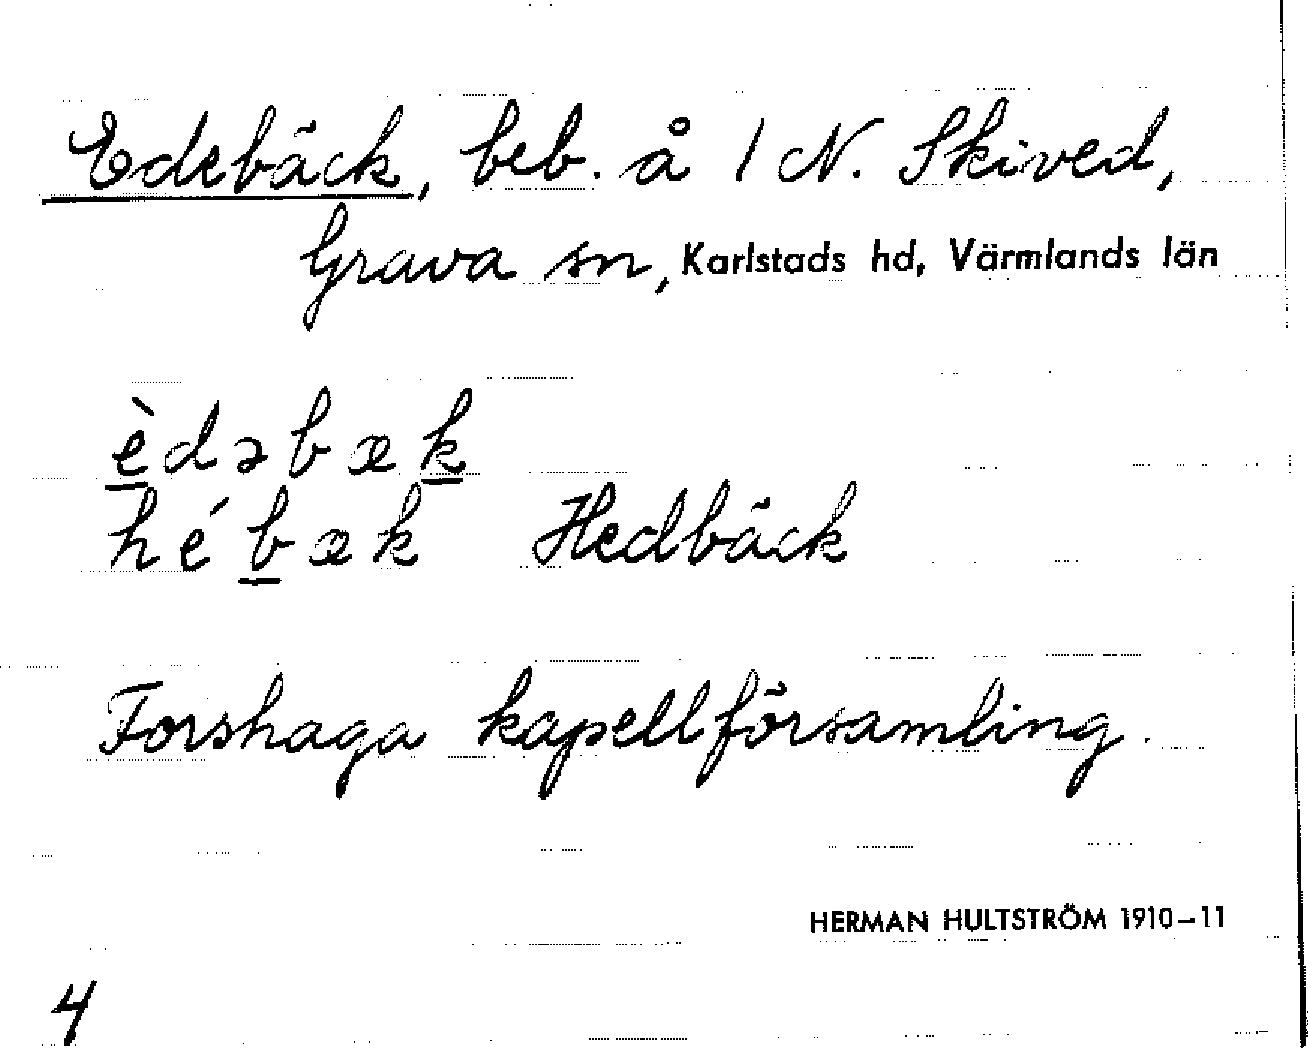 Edebäck, beb. å 1 N. Skived,
Grava sn, Karlstads hd, Värmlands län
èdəbæk
hébæk Hedbäck
Forshaga kapellförsamling.
HERMAN HULTSTRÖM 1910–11
4